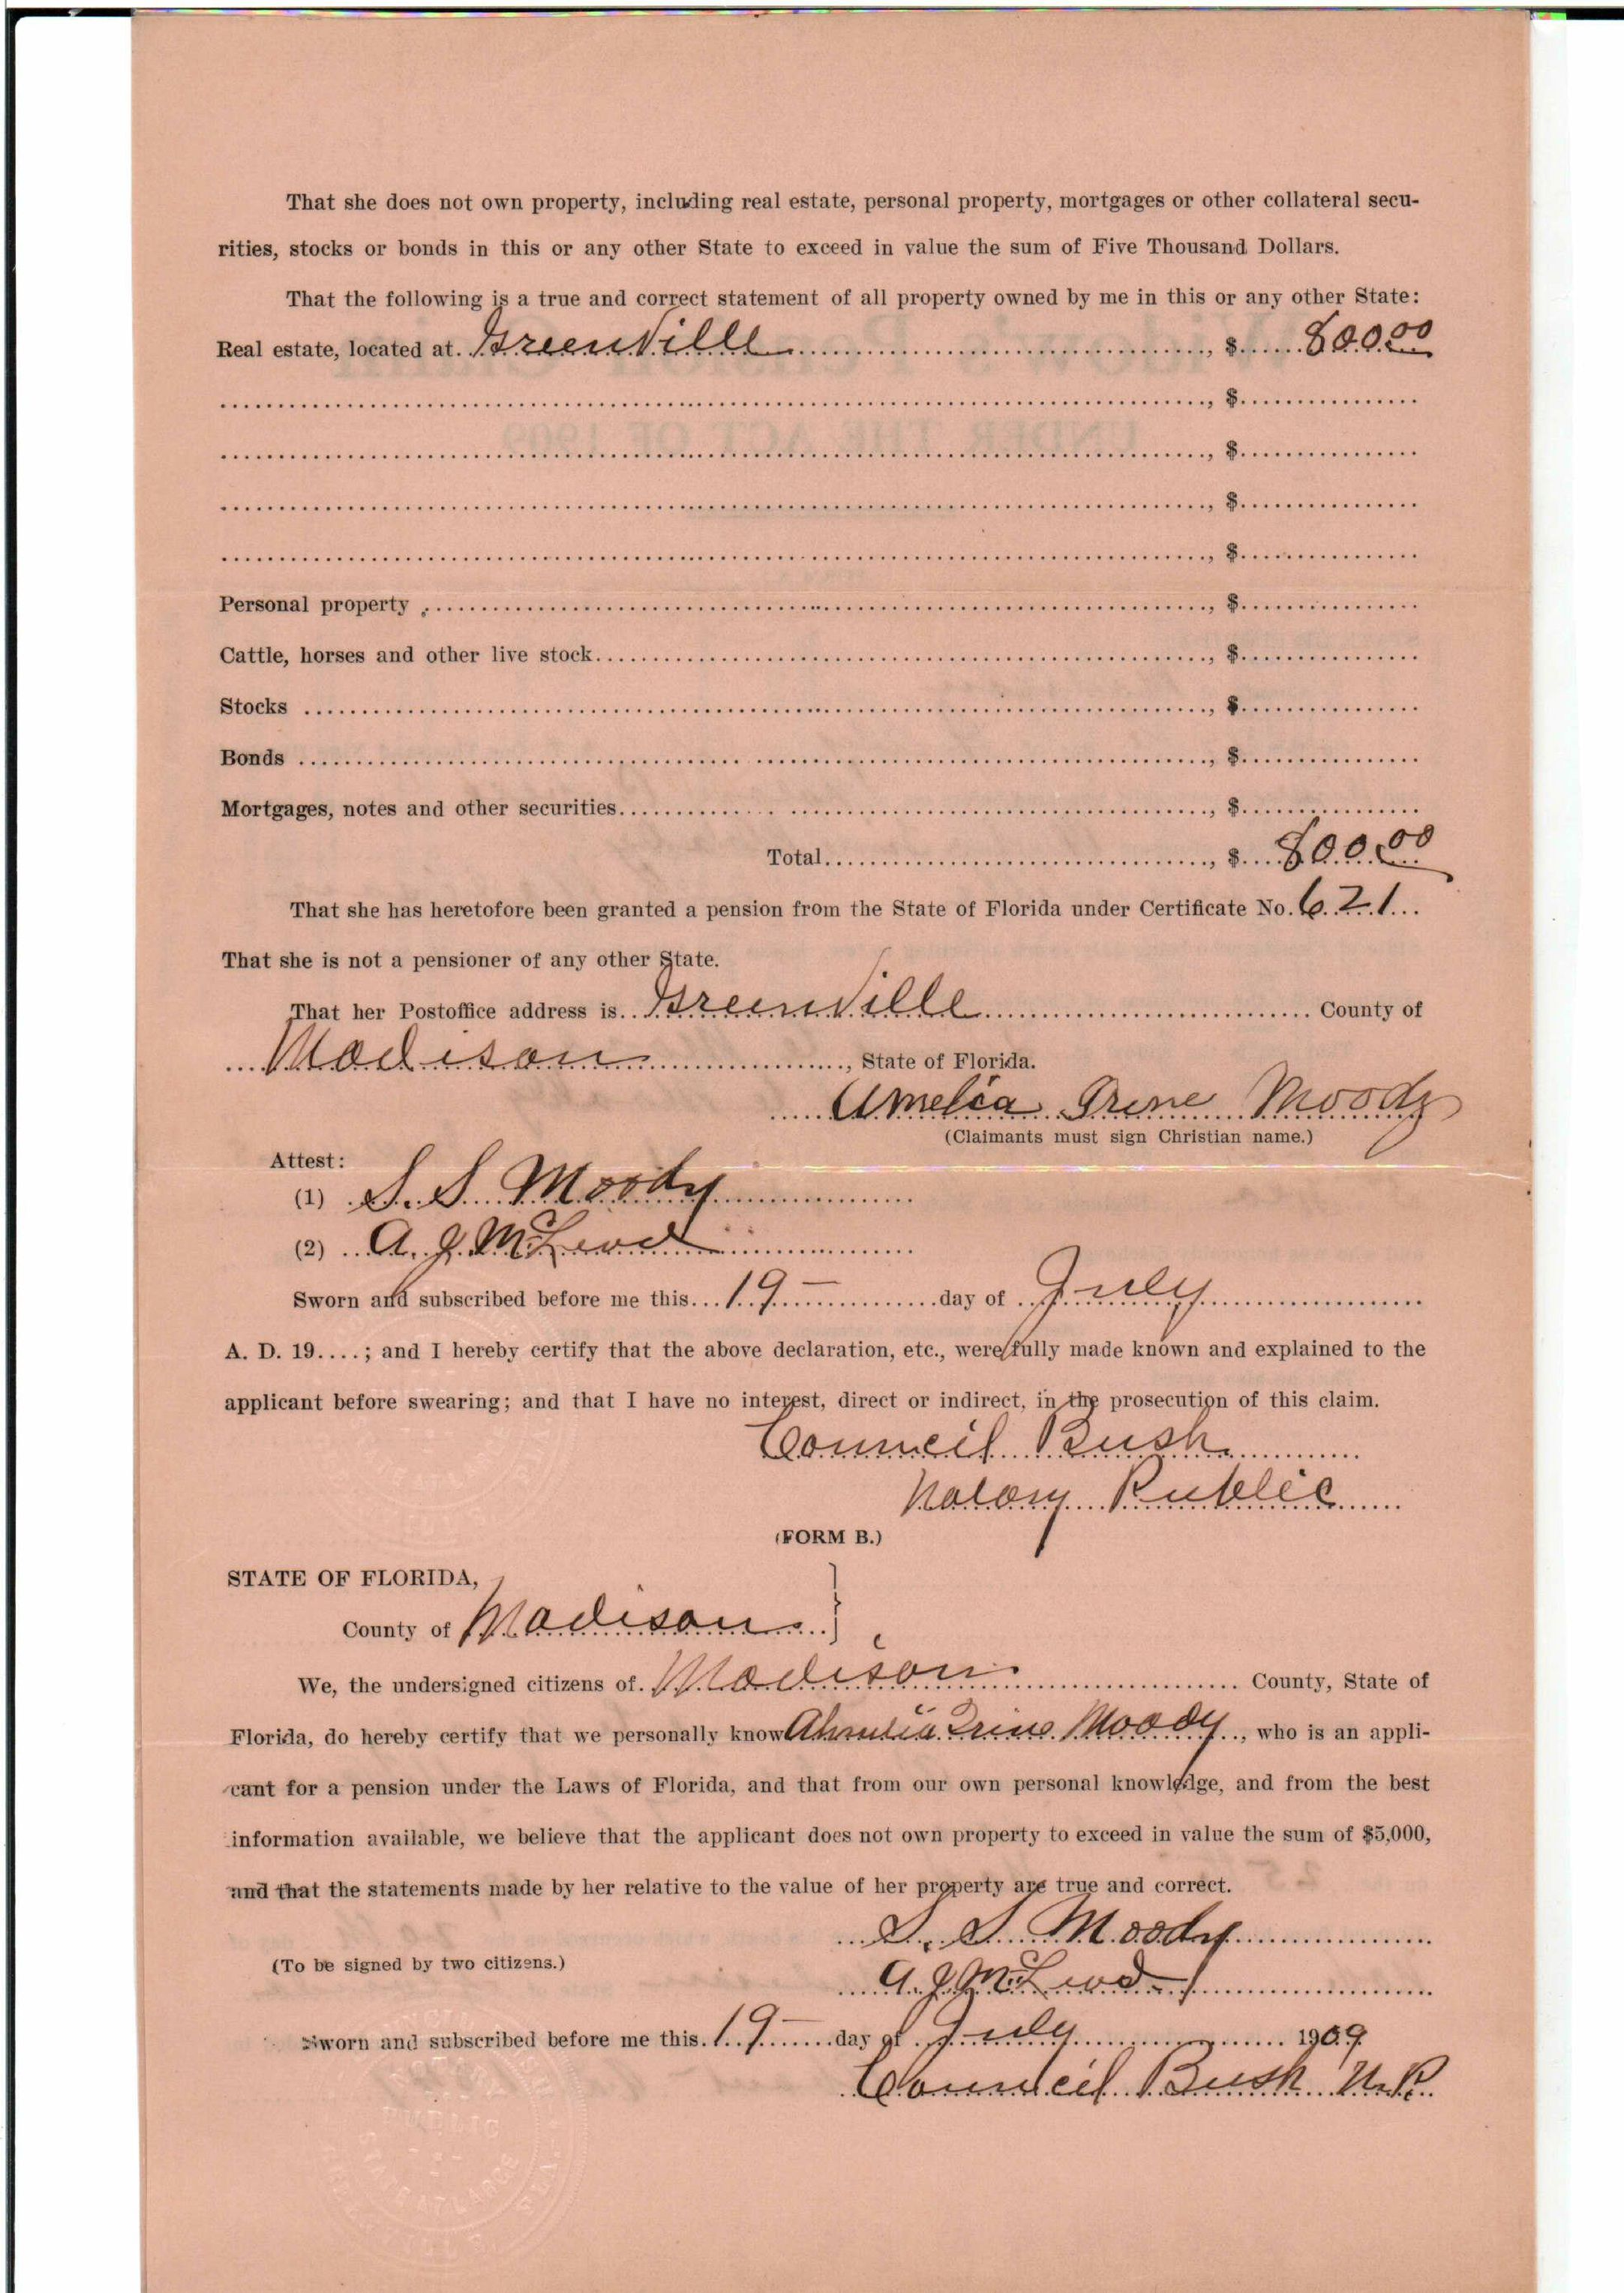 That she does not own property, including real estate, personal property, mortgages or other collateral secu-
rities, stocks or bonds in this or any other State to exceed in value the sum of Five Thousand Dollars.
That the following is a true and correct statement of all property owned by me in this or any other State:
Real estate, located at. Greenville, $ 800.00
, $
, $
, $
, $
Personal property, $
Cattle, horses and other live stock, $
Stocks, $
Bonds, $
Mortgages, notes and other securities, $
Total, $ 800.00
That she has heretofore been granted a pension from the State of Florida under Certificate No. 621
That she is not a pensioner of any other State.
That her Postoffice address is Greenville County of
Madison, State of Florida.
Amelia Irene Moody
(Claimants must sign Christian name.)
Attest:
(1) S. S. Moody
(2) A. J. McLeod
Sworn and subscribed before me this 19 day of July
A. D. 19....; and I hereby certify that the above declaration, etc., were fully made known and explained to the
applicant before swearing; and that I have no interest, direct or indirect, in the prosecution of this claim.
Council Bush
Notary Public
(FORM B.)
STATE OF FLORIDA,
County of Madison
We, the undersigned citizens of Madison County, State of
Florida, do hereby certify that we personally know Ahmelia Irine Moody, who is an appli-
cant for a pension under the Laws of Florida, and that from our own personal knowledge, and from the best
information available, we believe that the applicant does not own property to exceed in value the sum of $5,000,
and that the statements made by her relative to the value of her property are true and correct.
S. S. Moody
(To be signed by two citizens.)
A. J. McLeod
Sworn and subscribed before me this 19 day of July 1909
Council Bush N.P.